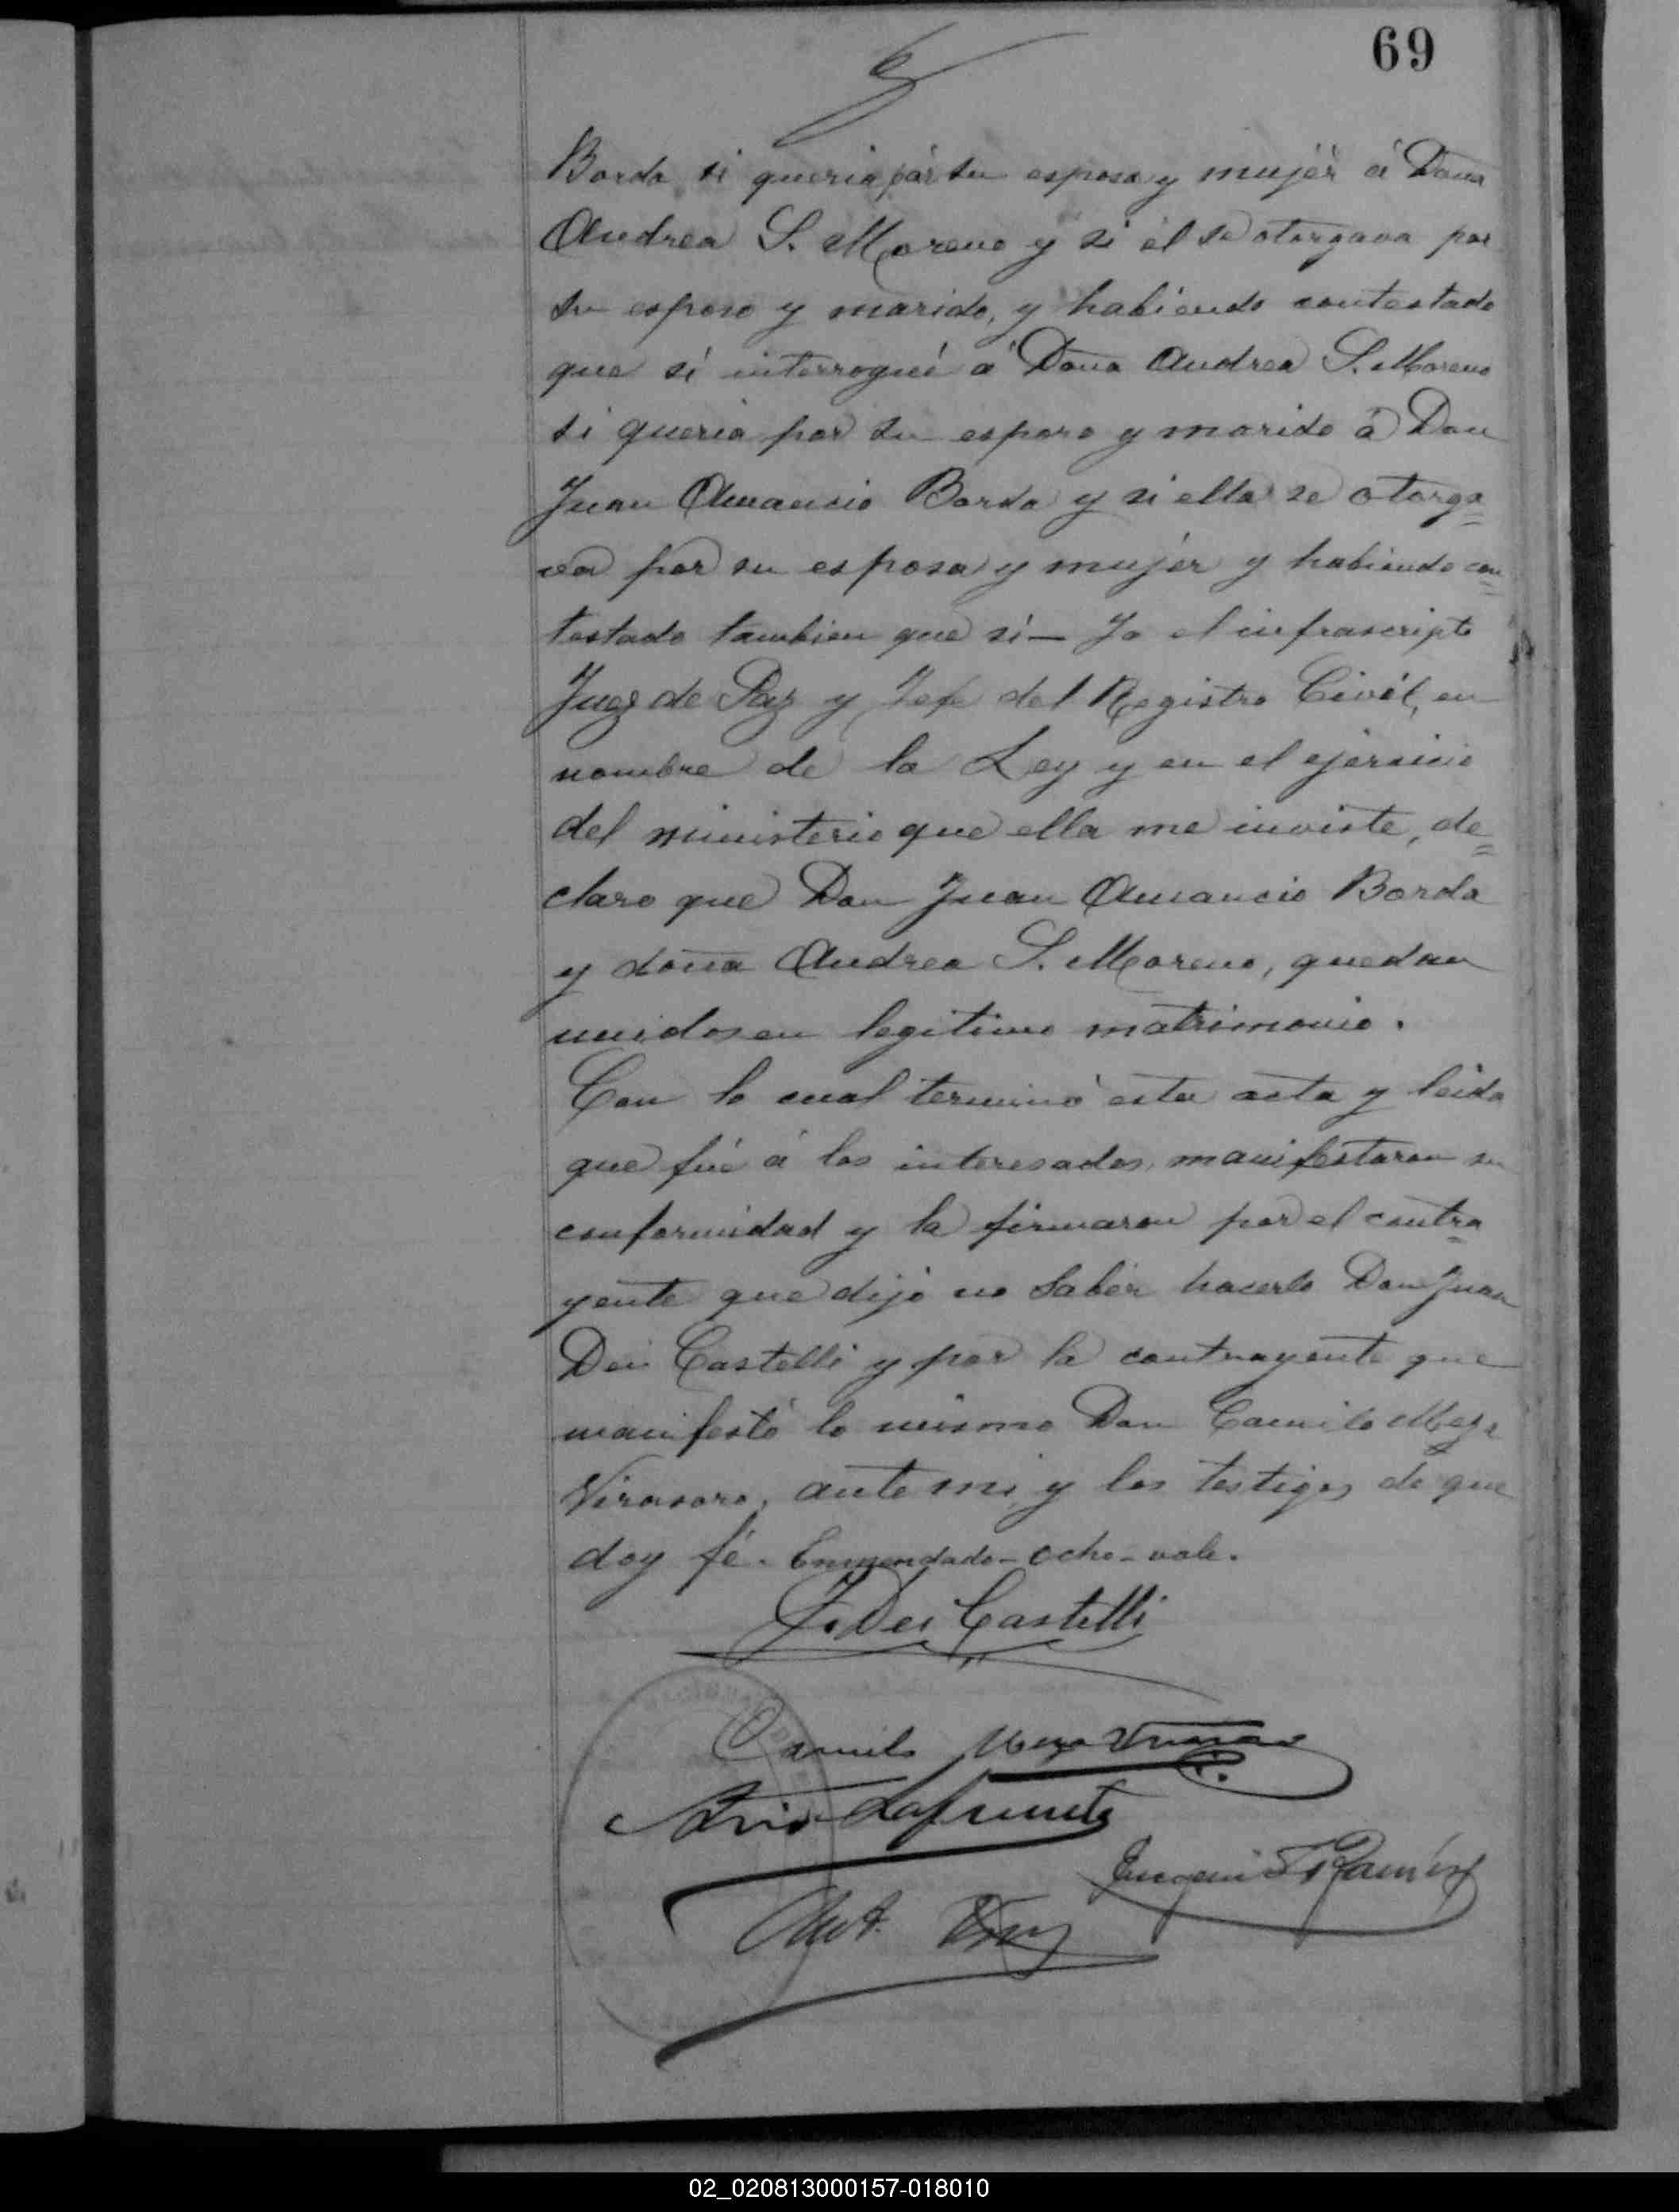 69
Borda si queria por su esposa y mujér á Doña
Andrea S. Moreno y si él se otorgava por
su esposo y marido, y habiendo contestado
que sí interrogué á Doña Andrea S. Moreno
si queria por su esposo y marido á Don
Juan Amancio Borda y si ella se otorga=
va por su esposa y mujér y habiendo con=
testado tambien que sí — Yo el infrascripto
Juez de Paz y Jefe del Registro Civil, en
nombre de la Ley y en el ejercicio
del ministerio que ella me inviste, de=
claro que Don Juan Amancio Borda
y doña Andrea S. Moreno, quedan
unidos en legitimo matrimonio.
Con lo cual terminó esta acta y leida
que fué á los interesados, manifestaron su
conformidad y la firmaron por el contra
yente que dijo no sabér hacerlo Don Juan
Dei Castelli y por la contrayente que
manifestó lo mismo Don Camilo Meza
Virasoro, ante mi y los testigos de que
doy fé. Enmendado - ocho - vale.
J. Dei Castelli
Camilo Meza Virasoro
Lafuente
02_020813000157-018010